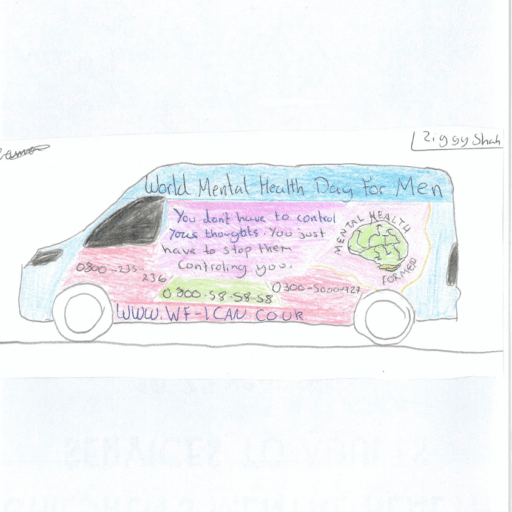 Ziggy Shah
World Mental Health Day For Men
You dont have to control
Your thoughts. You just
have to stop them
Controling you.
MENTAL HEALTH
FORMEN
0800-235-
236
0800-58-58-58
0300-5000-927
WWW.WF-ICAN.CO.UK